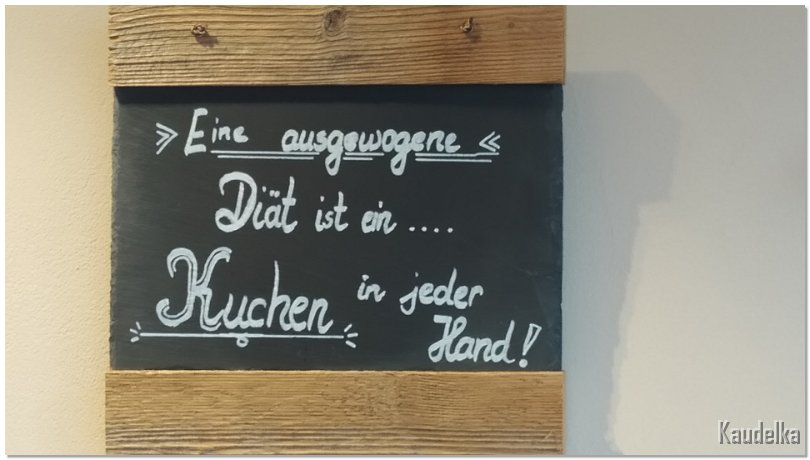 » Eine ausgewogene «
Diät ist ein ....
Kuchen in jeder
Hand!
Kaudelka